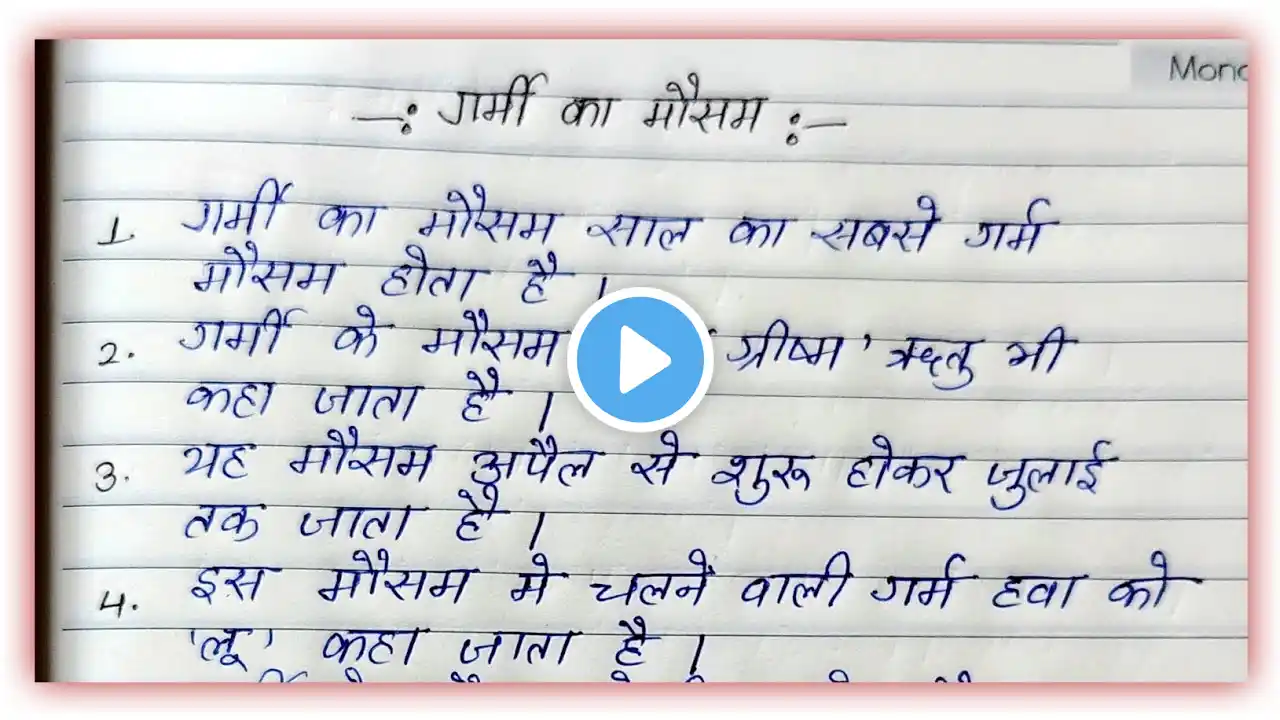 Mon
—: गर्मी का मौसम :—
1. गर्मी का मौसम साल का सबसे गर्म
मौसम होता है ।
2. गर्मी के मौसम ग्रीष्म' ऋतु भी
कहा जाता है ।
3. यह मौसम अप्रैल से शुरू होकर जुलाई
तक जाता है ।
4. इस मौसम मे चलने वाली गर्म हवा को
'लू' कहा जाता है ।